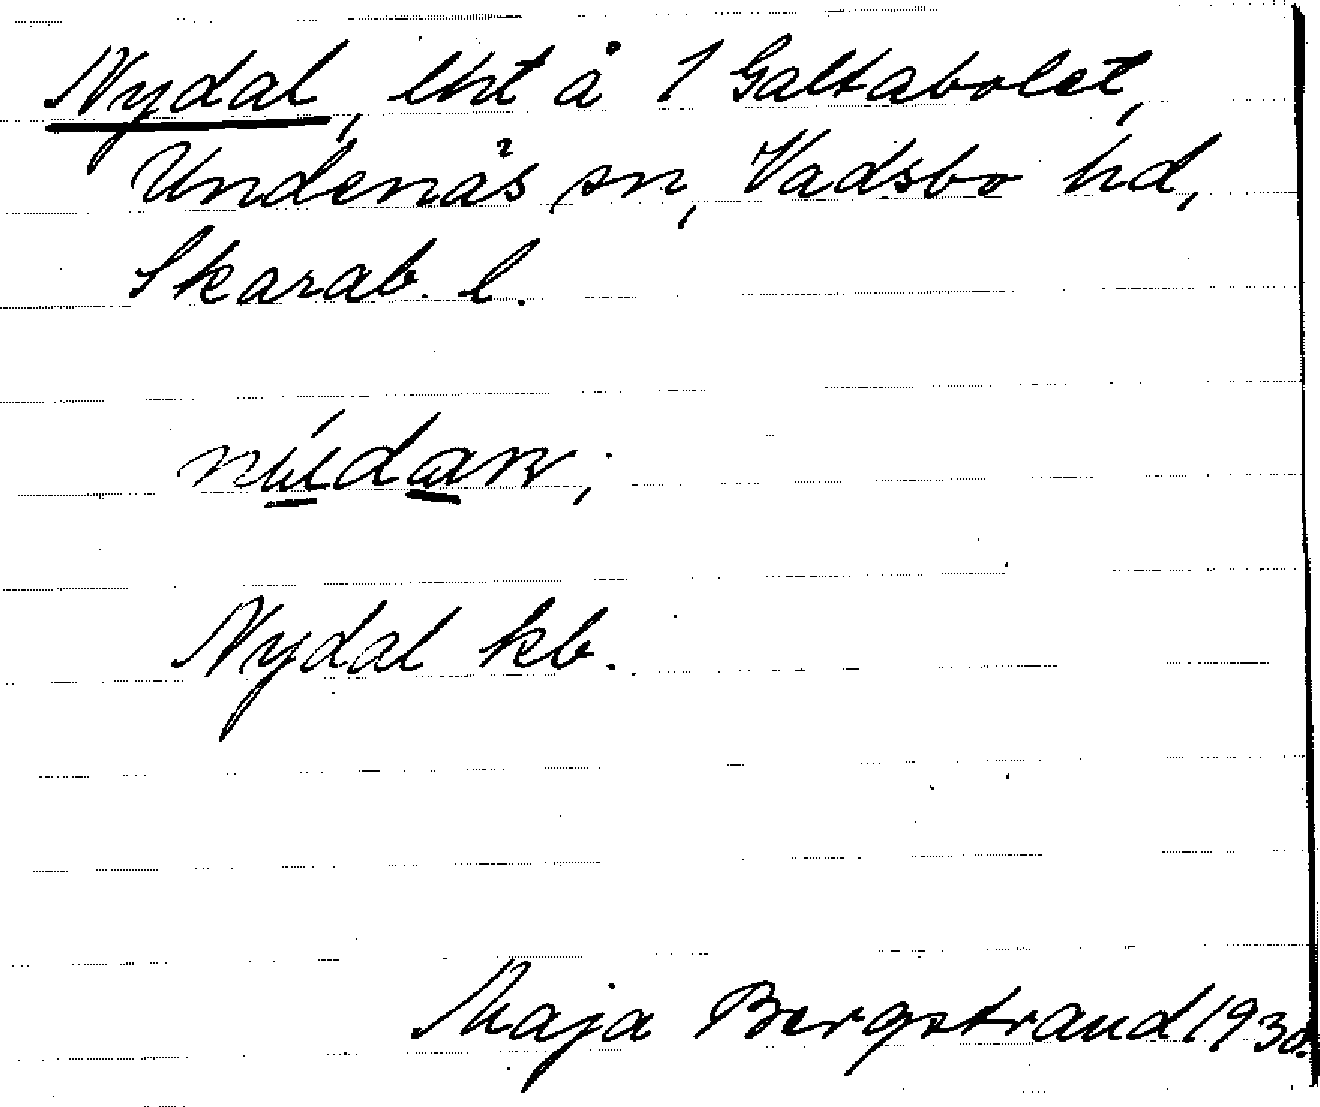 Nydal, lht å 1 Galtabolet,
Undenäs sn, Vadsbo hd,
Skarab. l.
Nydal kb.
Maja Bergstrand 1930.